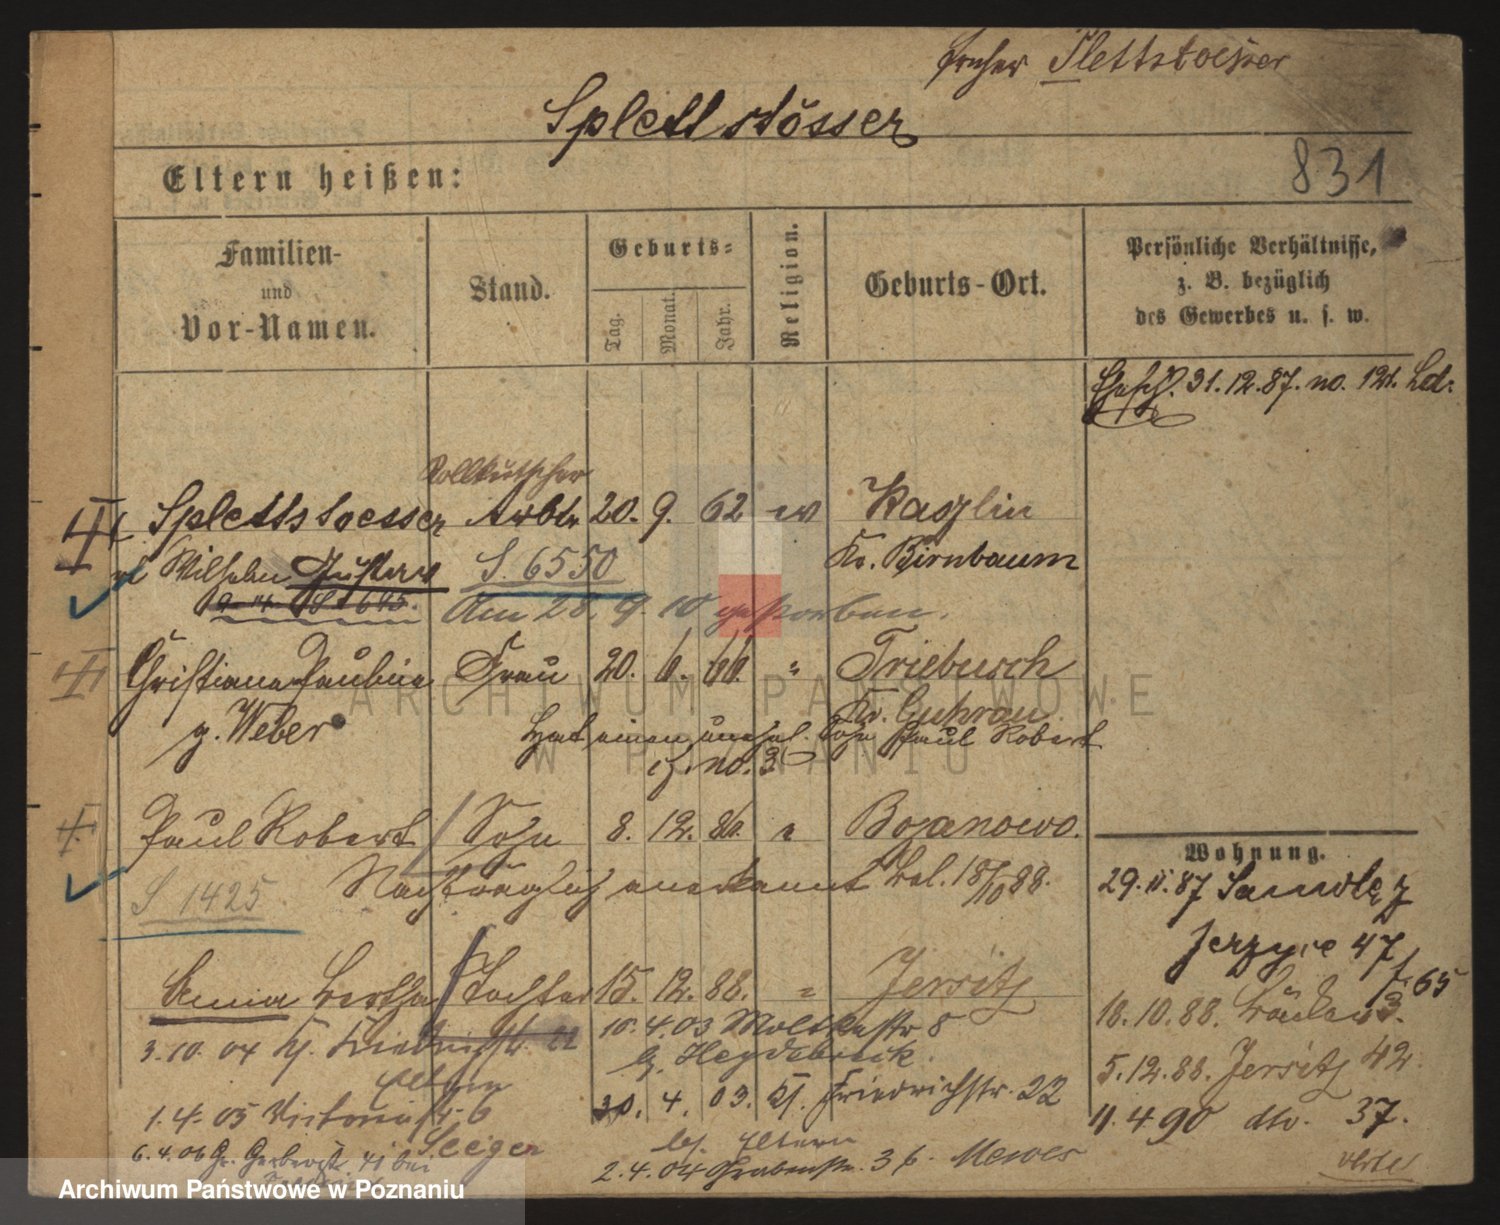 früher Plettstoesser
Splettstösser
831
Eltern heißen:
Familien-
und
Vor-Namen.
Stand.
Geburts-
Tag.
Monat.
Jahr.
Religion.
Geburts-Ort.
Persönliche Verhältnisse,
z. B. bezüglich
des Gewerbes u. s. w.
31.12.87. no. 121.
Rollkutscher
Splettstoesser Arbtr 20. 9. 62 ev Waglin
Wilhelm Gustav S. 6550 Kr. Birnbaum
Am 28. 9. 10 gestorben.
Christiane Pauline Frau 20. 6. 60. " Triebusch
g. Weber Kr. Guhrau
Hat einen unehel. Sohn Paul Robert
cf. no. 3
Paul Robert Sohn 8. 12. 86. " Bojanowo.
S 1425 Nachträglich anerkannt 18/10 88.
Anna Bertha Tochter 15. 12. 88. " Jersitz
3.10.04 Friedrichstr. 22
Eltern
10.4.03 Moltkestr 8
b. Heydebreck.
30. 4. 03. Friedrichstr. 22
bei Eltern
1.4.05 Victoriastr. 6
Seeger
6.4.06 Gr. Gerberstr. 41 bei
2.4.04 Grabenstr. 36. Mewes
Wohnung.
29.11.87 Sandweg
Jerzyce 47
f. 65
18.10.88. 3.
5.12.88. Jersitz 42.
11.4.90 dto. 37.
verte
ARCHIWUM PAŃSTWOWE
W POZNANIU
Archiwum Państwowe w Poznaniu